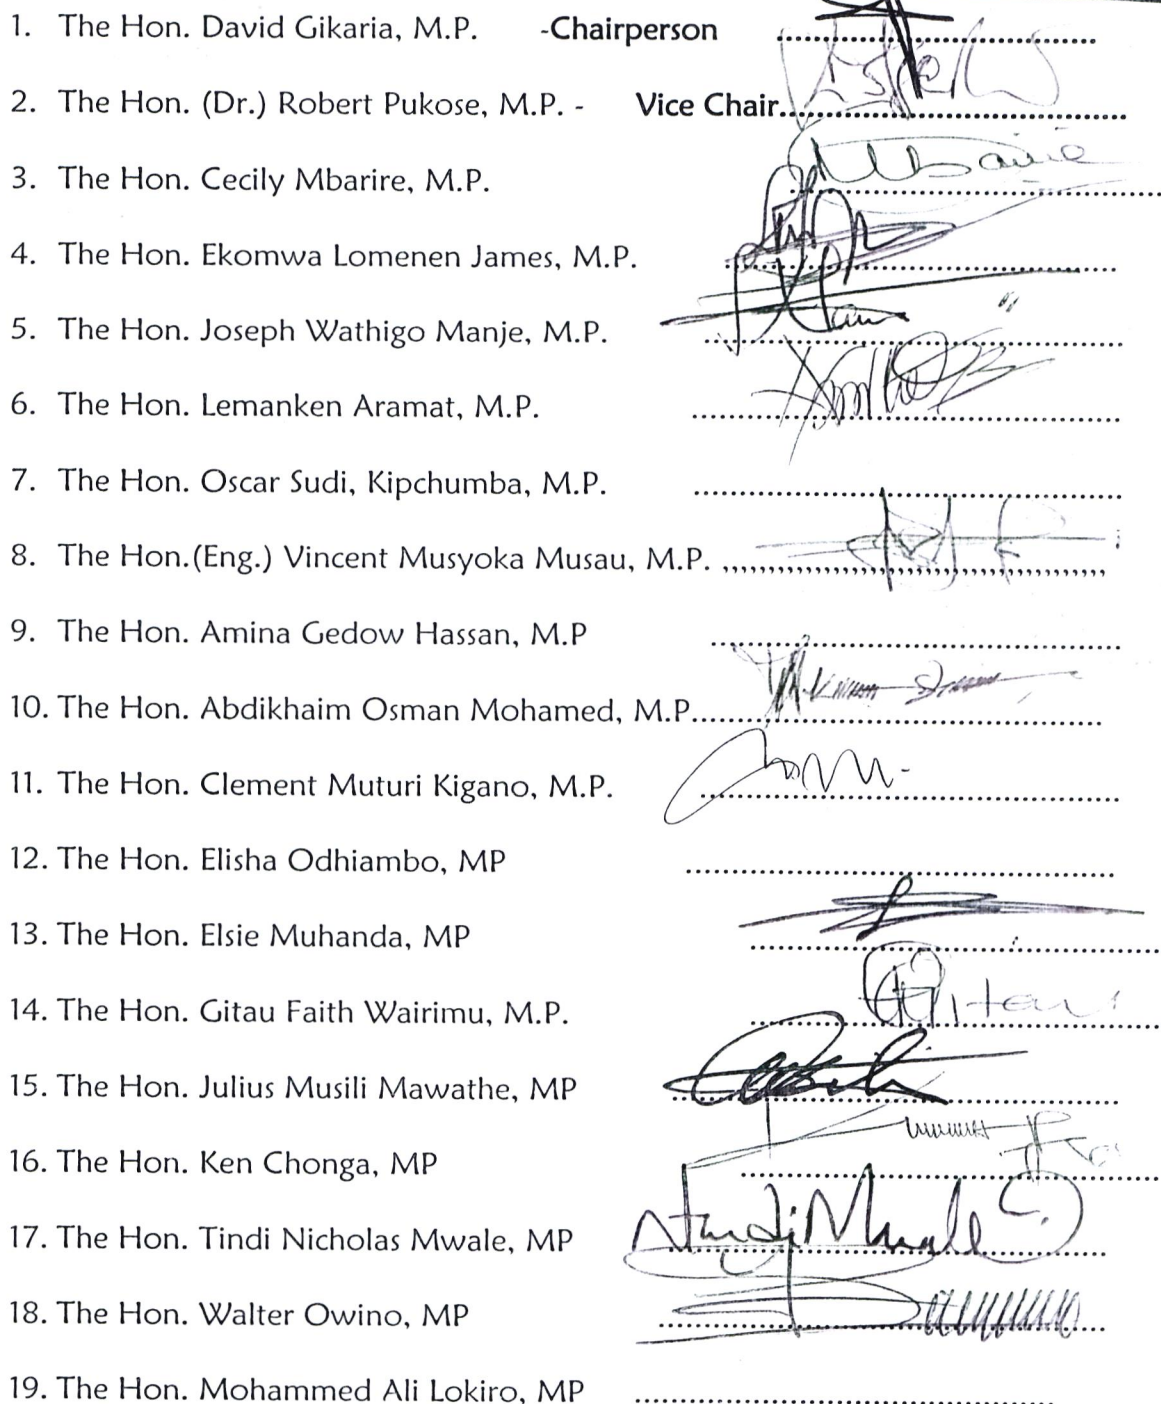 1. The Hon. David Gikaria, M.P. -Chairperson
2. The Hon. (Dr.) Robert Pukose, M.P. - Vice Chair
3. The Hon. Cecily Mbarire, M.P.
4. The Hon. Ekomwa Lomenen James, M.P.
5. The Hon. Joseph Wathigo Manje, M.P.
6. The Hon. Lemanken Aramat, M.P.
7. The Hon. Oscar Sudi, Kipchumba, M.P.
8. The Hon.(Eng.) Vincent Musyoka Musau, M.P.
9. The Hon. Amina Gedow Hassan, M.P
10. The Hon. Abdikhaim Osman Mohamed, M.P.
11. The Hon. Clement Muturi Kigano, M.P.
12. The Hon. Elisha Odhiambo, MP
13. The Hon. Elsie Muhanda, MP
14. The Hon. Gitau Faith Wairimu, M.P.
15. The Hon. Julius Musili Mawathe, MP
16. The Hon. Ken Chonga, MP
17. The Hon. Tindi Nicholas Mwale, MP
18. The Hon. Walter Owino, MP
19. The Hon. Mohammed Ali Lokiro, MP